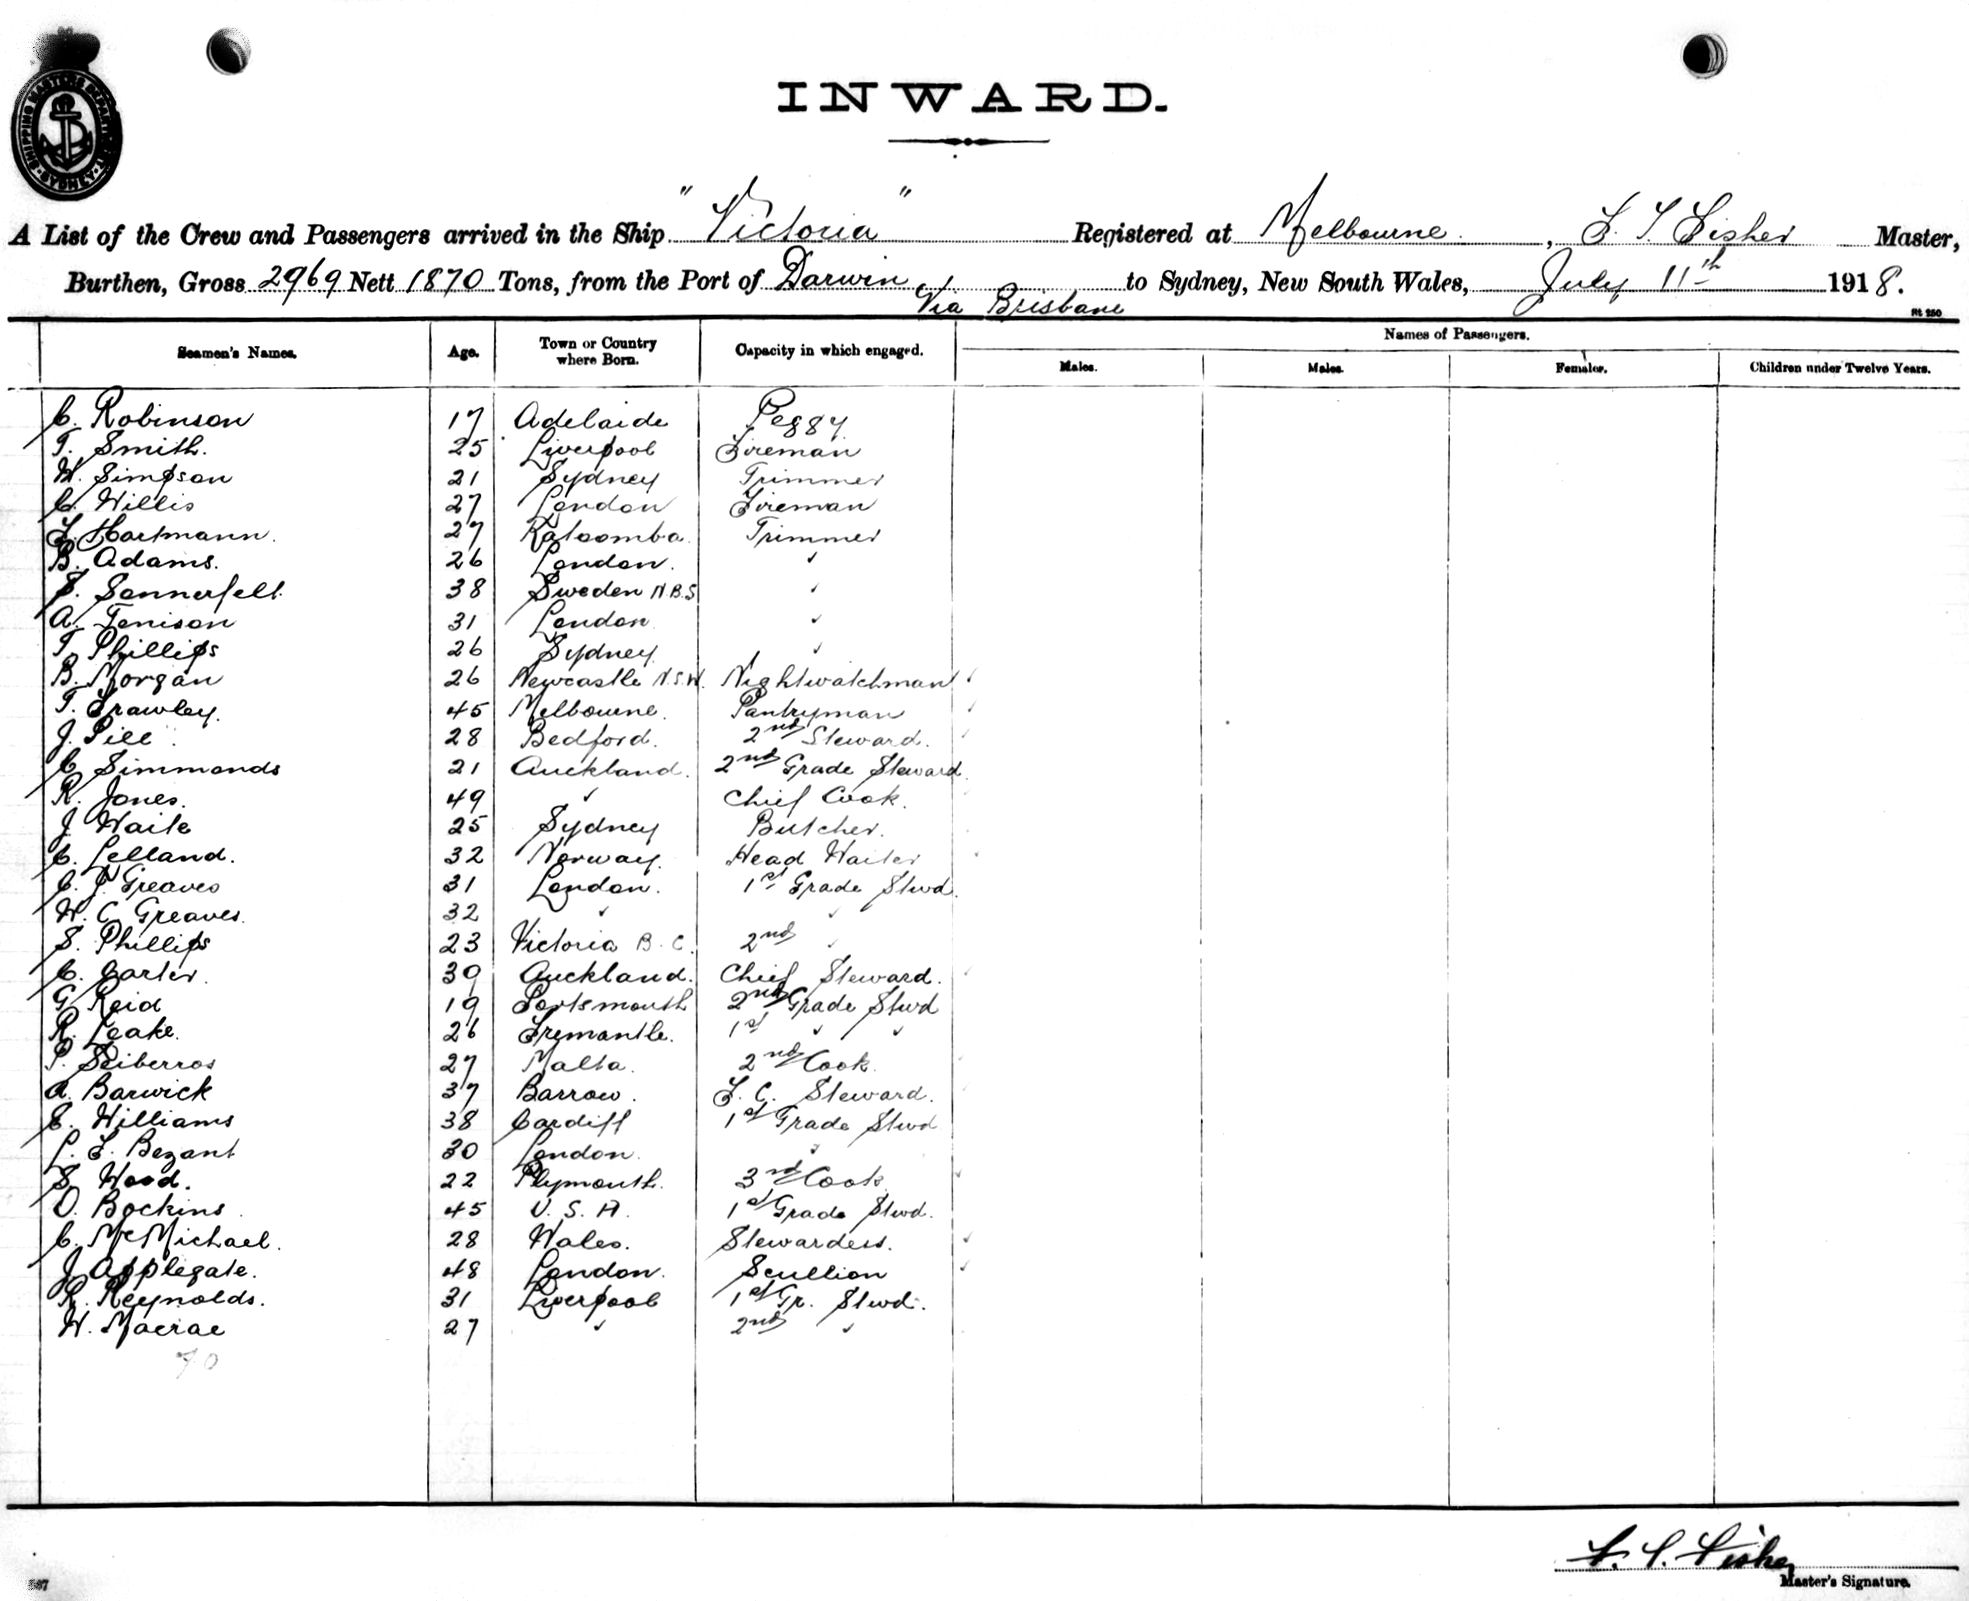 SHIPPING MASTERS DEPARTMENT SYDNEY
INWARD.
A List of the Crew and Passengers arrived in the Ship "Victoria" Registered at Melbourne, Fisher Master,
Burthen, Gross 2969 Nett 1870 Tons, from the Port of Darwin to Sydney, New South Wales, July 11th 1918.
Via Brisbane
Seamen's Names. Age. Town or Country where Born. Capacity in which engaged. Names of Passengers.
Males. Males. Females. Children under Twelve Years.
C. Robinson 17 Adelaide Peggy
T. Smith. 25 Liverpool Fireman
W. Simpson 21 Sydney Trimmer
C. Willis 27 London Fireman
Hartmann. 27 Katoomba Trimmer
B. Adams. 26 London. "
S. Sonnerfelt 38 Sweden N.B.S "
A. Tenison 31 London "
T. Phillips 26 Sydney "
B. Morgan 26 Newcastle N.S.W. Nightwatchman
T. 45 Melbourne. Pantryman
J. 28 Bedford. 2nd Steward.
C. Simmonds 21 Auckland. 2nd Grade Steward
R. Jones. 49 " Chief Cook.
J. Waite 25 Sydney Butcher.
C. Lelland. 32 Norway. Head Waiter
C. J. Greaves 31 London. 1st Grade Stwd.
W. C. Greaves. 32 " "
S. Phillips 23 Victoria B.C. 2nd "
C. Carter. 39 Auckland. Chief Steward.
G. Reid 19 Portsmouth 2nd Grade Stwd
R. Leake. 26 Fremantle. 1st " "
P. Sciberras 27 Malta. 2nd Cook
A. Barwick 37 Barrow. F. C. Steward.
E. Williams 38 Cardiff 1st Grade Stwd
Bezant 30 London. "
S. Wood. 22 Plymouth. 3rd Cook
O. Bockins 45 U.S.A. 1st Grade Stwd.
C. McMichael. 28 Wales. Stewardess.
J. Applegate. 48 London. Scullion
R. Reynolds. 31 Liverpool 1st Gr. Stwd.
W. Macrae 27 " 2nd "
70
Fisher
Master's Signature.